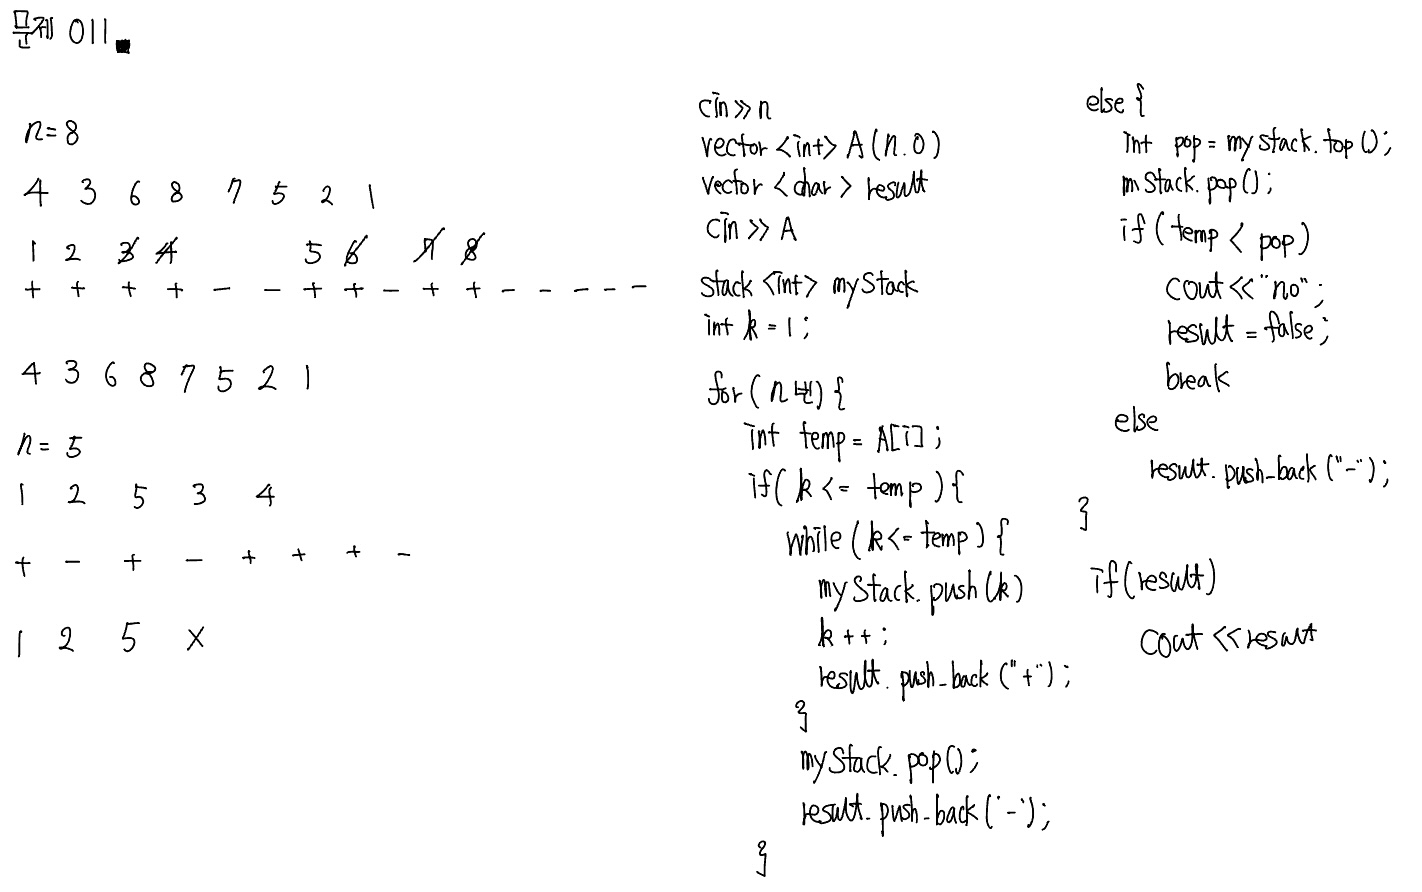 문제 011.
n=8
4 3 6 8 7 5 2 1
1 2 3 4 5 6 7 8
+ + + + - - + + - + + - - - - -
4 3 6 8 7 5 2 1
n= 5
1 2 5 3 4
+ - + - + + + -
1 2 5 x
cin>>n
vector <int> A (n.0)
vector <char> result
cin >> A
stack <int> myStack
int k = 1;
for ( n번) {
int temp = A[i] ;
if( k <= temp ) {
while ( k <= temp ) {
myStack. push (k)
k ++;
result. push_back ("+");
}
myStack. pop();
result. push_back ('-');
}
else {
int pop = my stack. top ();
mStack. pop();
if ( temp < pop)
cout << "no";
result = false;
break
else
result. push_back ("-");
}
if (result)
cout << result